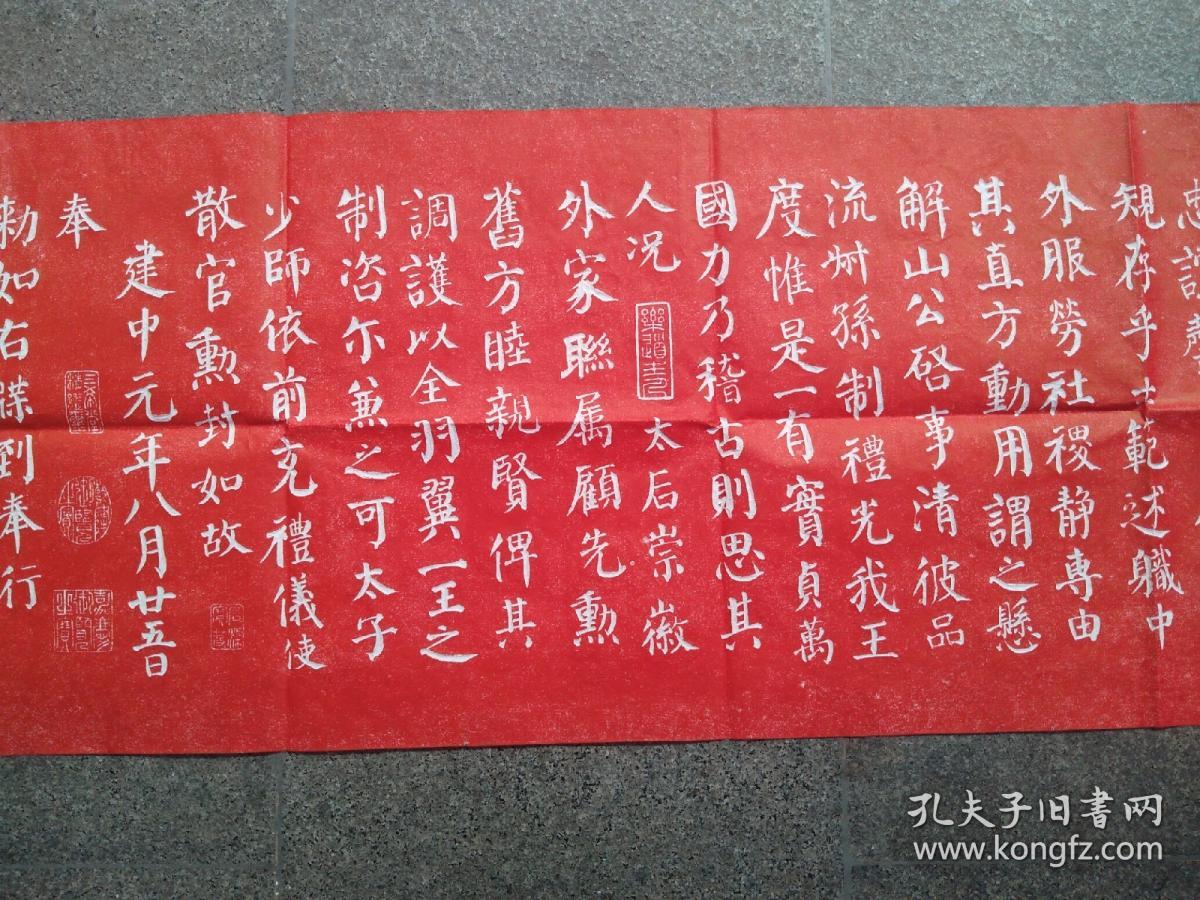 忠讜罄
規存乎士範述職中
外服勞社稷静專由
其直方動用謂之懸
解山公啓事清彼品
流叔孫制禮光我王
度惟是一有實貞萬
國力乃稽古則思其
人况 太后崇徽
外家聯属顧先勲
舊方睦親賢俾其
調護以全羽翼一王之
制咨尒兼之可太子
少師依前充禮儀使
散官勲封如故
建中元年八月廿五日
三希堂精鑑璽
嘉慶御覽之寶
奉
勅如右牒到奉行
孔夫子旧书网
www.kongfz.com